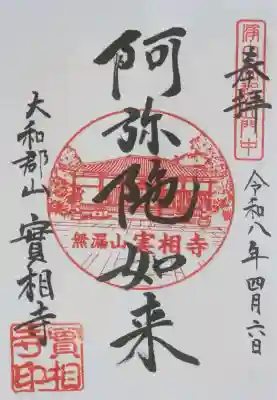 奉拝
令和八年四月六日
阿弥陀如来
無漏山実相寺
大和郡山 實相寺
實相寺印